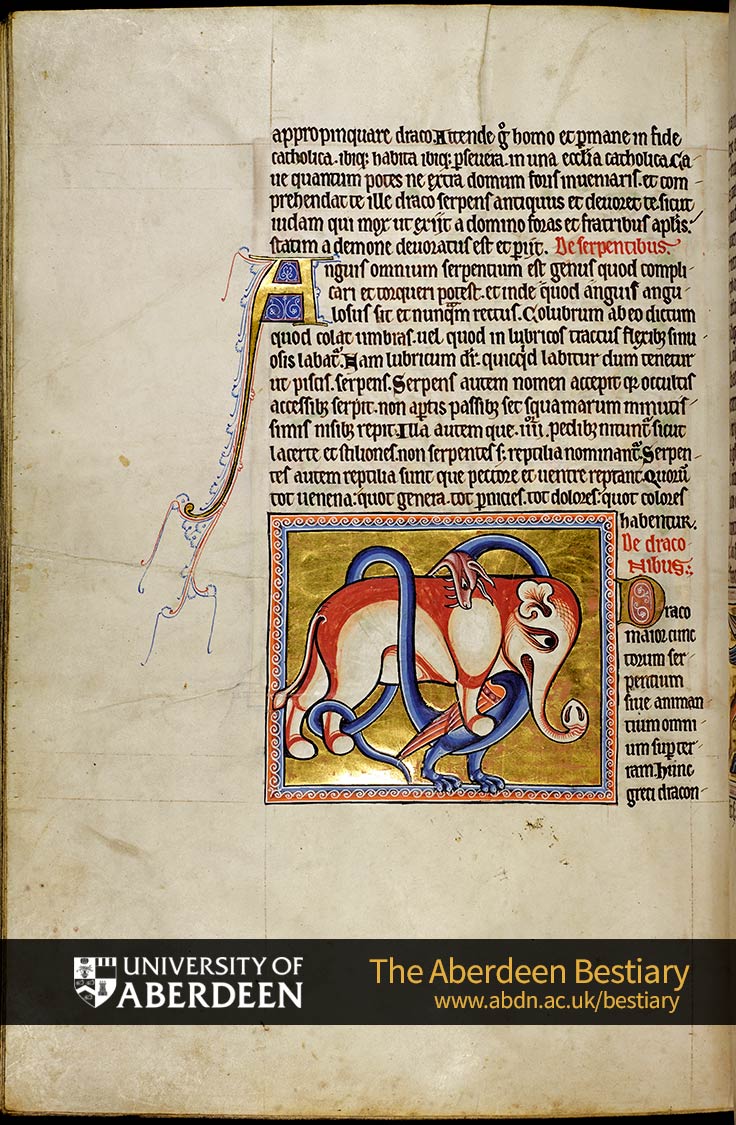 appropinquare draco. Attende g̊ homo et p̄mane in fide
catholica. ibiq; habita ibiq; p̱seuera. in una ecclīa catholica. Ca
ue quantum potes ne extra domum foris inueniaris. et com
prehendat te ille draco serpens antiquus et deuoret te sicut
iudam qui mox ut exijt a domino foras et fratribus aplīs.
statim a demone deuoratus est et p̄ijt. De serpentibus.
Anguis omnium serpentium est genus quod compli-
cari et torqueri potest. et inde quod anguis angu-
losus sit et nunq̄m rectus. Colubrum ab eo dictum
quod colat umbras. uel quod in lubricos tractus flexib; sinu
osis labat᷑. Nam lubricum dr̄. quicq̇d labitur dum tenetur
ut piscis. serpens. Serpens autem nomen accepit q̄ occultis
accessib; serpit. non ap̱tis passib; set squamarum minutis-
simis nisib; repit. Illa autem que .iiii. pedib; nitunt᷑ sicut
lacerte et stiliones. non serpentes s; reptilia nominant᷑. Serpen-
tes autem reptilia sunt que pectore et uentre reptant. Quorū
tot uenena: quot genera. tot p̄nicies. tot dolores: quot colores
habentur.
De draco-
nibus:
Draco
maior cunc-
torum ser-
pentium
siue animan
tium omni-
um sup̱ ter-
ram. hunc
greci dracon-
UNIVERSITY OF
ABERDEEN
The Aberdeen Bestiary
www.abdn.ac.uk/bestiary